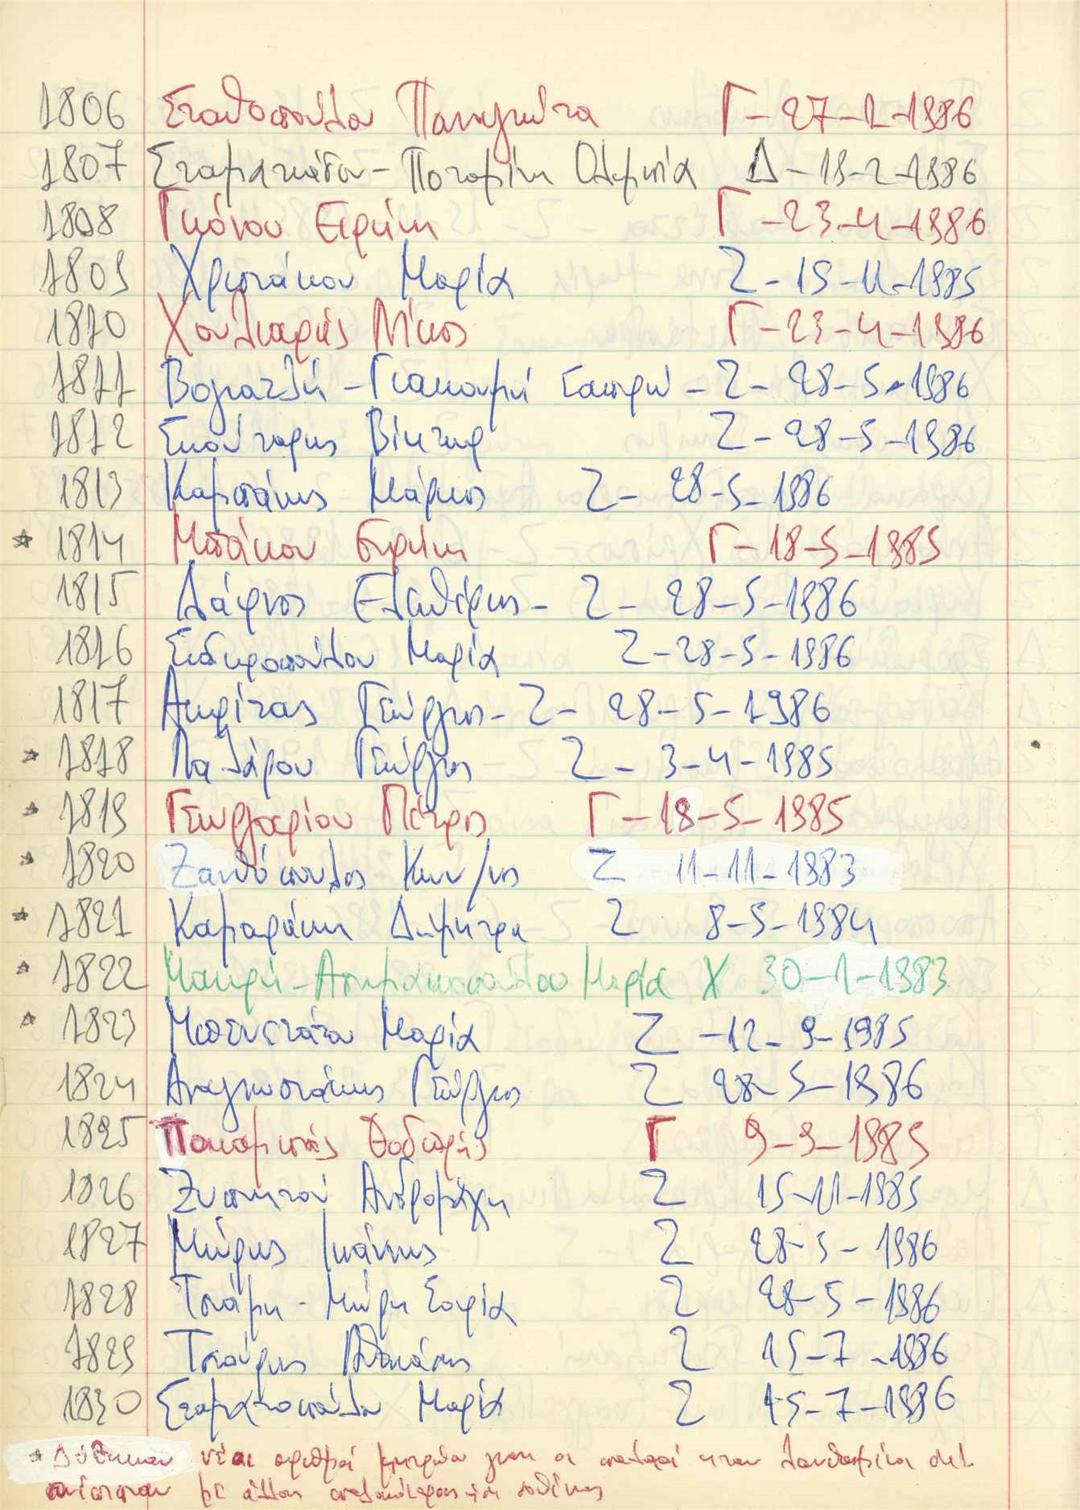 1806 Σταθοπούλου Παναγιώτα Γ-27-2-1986
1807 Σταματιάδου-Ποταμίτη Ολυμπία Δ-18-2-1986
1808 Γκόνου Ειρήνη Γ-23-4-1986
1809 Χρηστάκου Μαρία Ζ-15-11-1985
1810 Χουλιαράς Νίκος Γ-23-4-1986
1811 Βογιατζή-Γιακουμή Σαπφώ-Ζ-28-5-1986
1812 Σκούταρης Βίκτωρ Ζ-28-5-1986
1813 Καμπάνης Μάρκος Ζ-28-5-1986
* 1814 Μπάκου Ειρήνη Γ-18-5-1985
1815 Λάφνος Ελευθέριος-Ζ-28-5-1986
1816 Σιδηροπούλου Μαρία Ζ-28-5-1986
1817 Ακρίτας Γεώργιος-Ζ-28-5-1986
* 1818 Γεώργιος Ζ-3-4-1985
* 1819 Γεωργαρίου Πέτρος Γ-18-5-1985
* 1820 Ζανθόπουλος Κων/νος Ζ-11-11-1983
* 1821 Καμαράκη Δήμητρα Ζ 8-5-1984
* 1822 Μακρή-Ασημακοπούλου Μαρία Χ 30-1-1983
* 1823 Μπενετάτου Μαρία Ζ-12-9-1985
1824 Αναγνωστάκης Γεώργιος Ζ 28-5-1986
1825 Θοδωρής Γ 9-9-1985
1826 Ανδρομάχη Ζ 15-11-1985
1827 Μώρης Ιωάννης Ζ 28-5-1986
1828 Τσάμη-Μώρη Σοφία Ζ 28-5-1986
1829 Τσούρης Αθανάσιος Ζ 15-7-1986
1830 Σταματοπούλου Μαρία Ζ 15-7-1986
* Δόθηκαν νέοι αριθμοί μητρώου γιατί οι παλαιοί ήταν
με άλλου